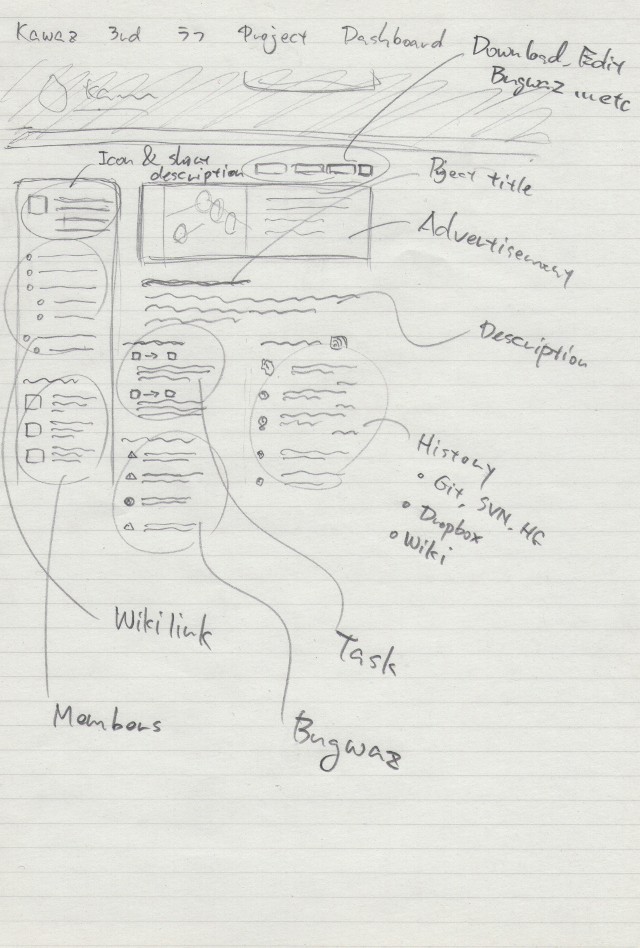 Kawaz 3rd ラフ Project Dashboard
Download, Edit
Bugwaz ... etc
Icon & short
description
Project title
Advertisemnay
Description
History
• Git, SVN, HG
• Dropbox
• Wiki
Wiki link
Task
Members
Bugwaz